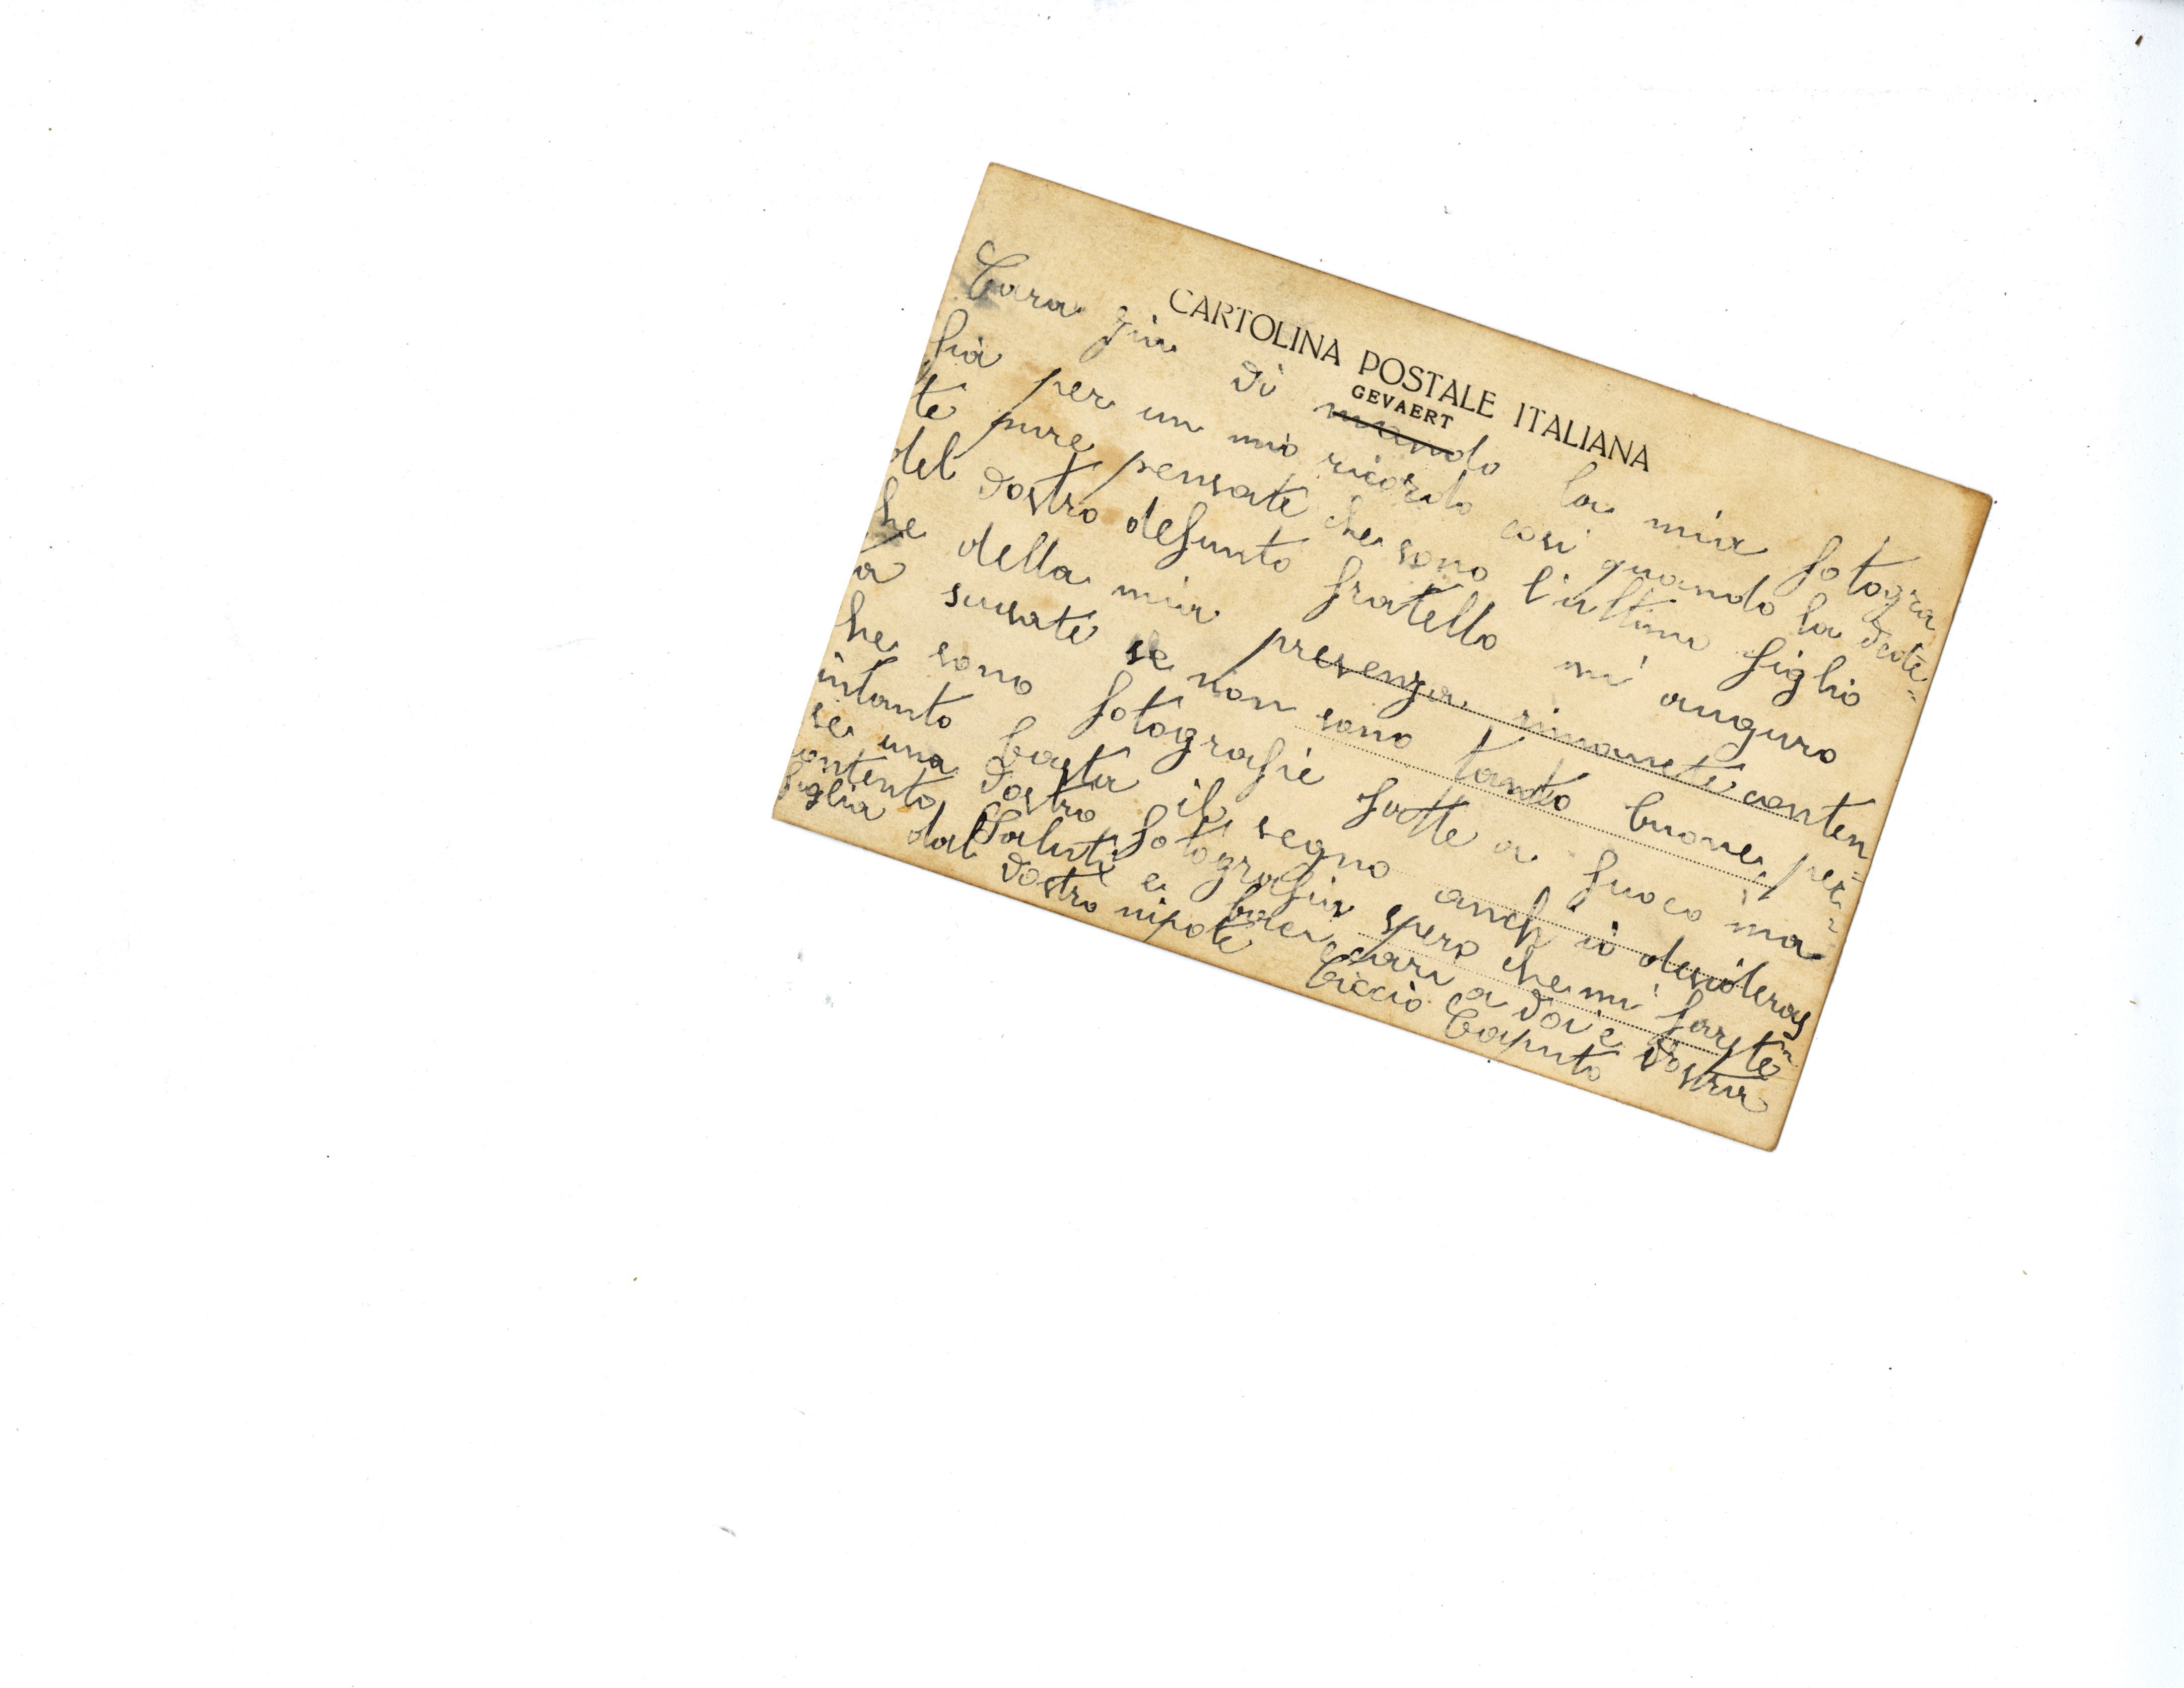 CARTOLINA POSTALE ITALIANA
GEVAERT
Cara zia Vi mando la mia fotogra
fia per un mio ricordo cosi quando la Vedete=
te pure pensate che sono l'ultimo figlio
del Vostro defunto fratello mi auguro
he della mia presenza rimanete conten
a scusate se non sono tando buone per=
he sono fotografie fatte a fuoco ma
intanto basta il segno anch io desideras
se una Vostra fotografia spero che mi farete
ontento Saluti e baci cari a Voi e Vostra
figlia dal Vostro nipote Ciccio Caputo